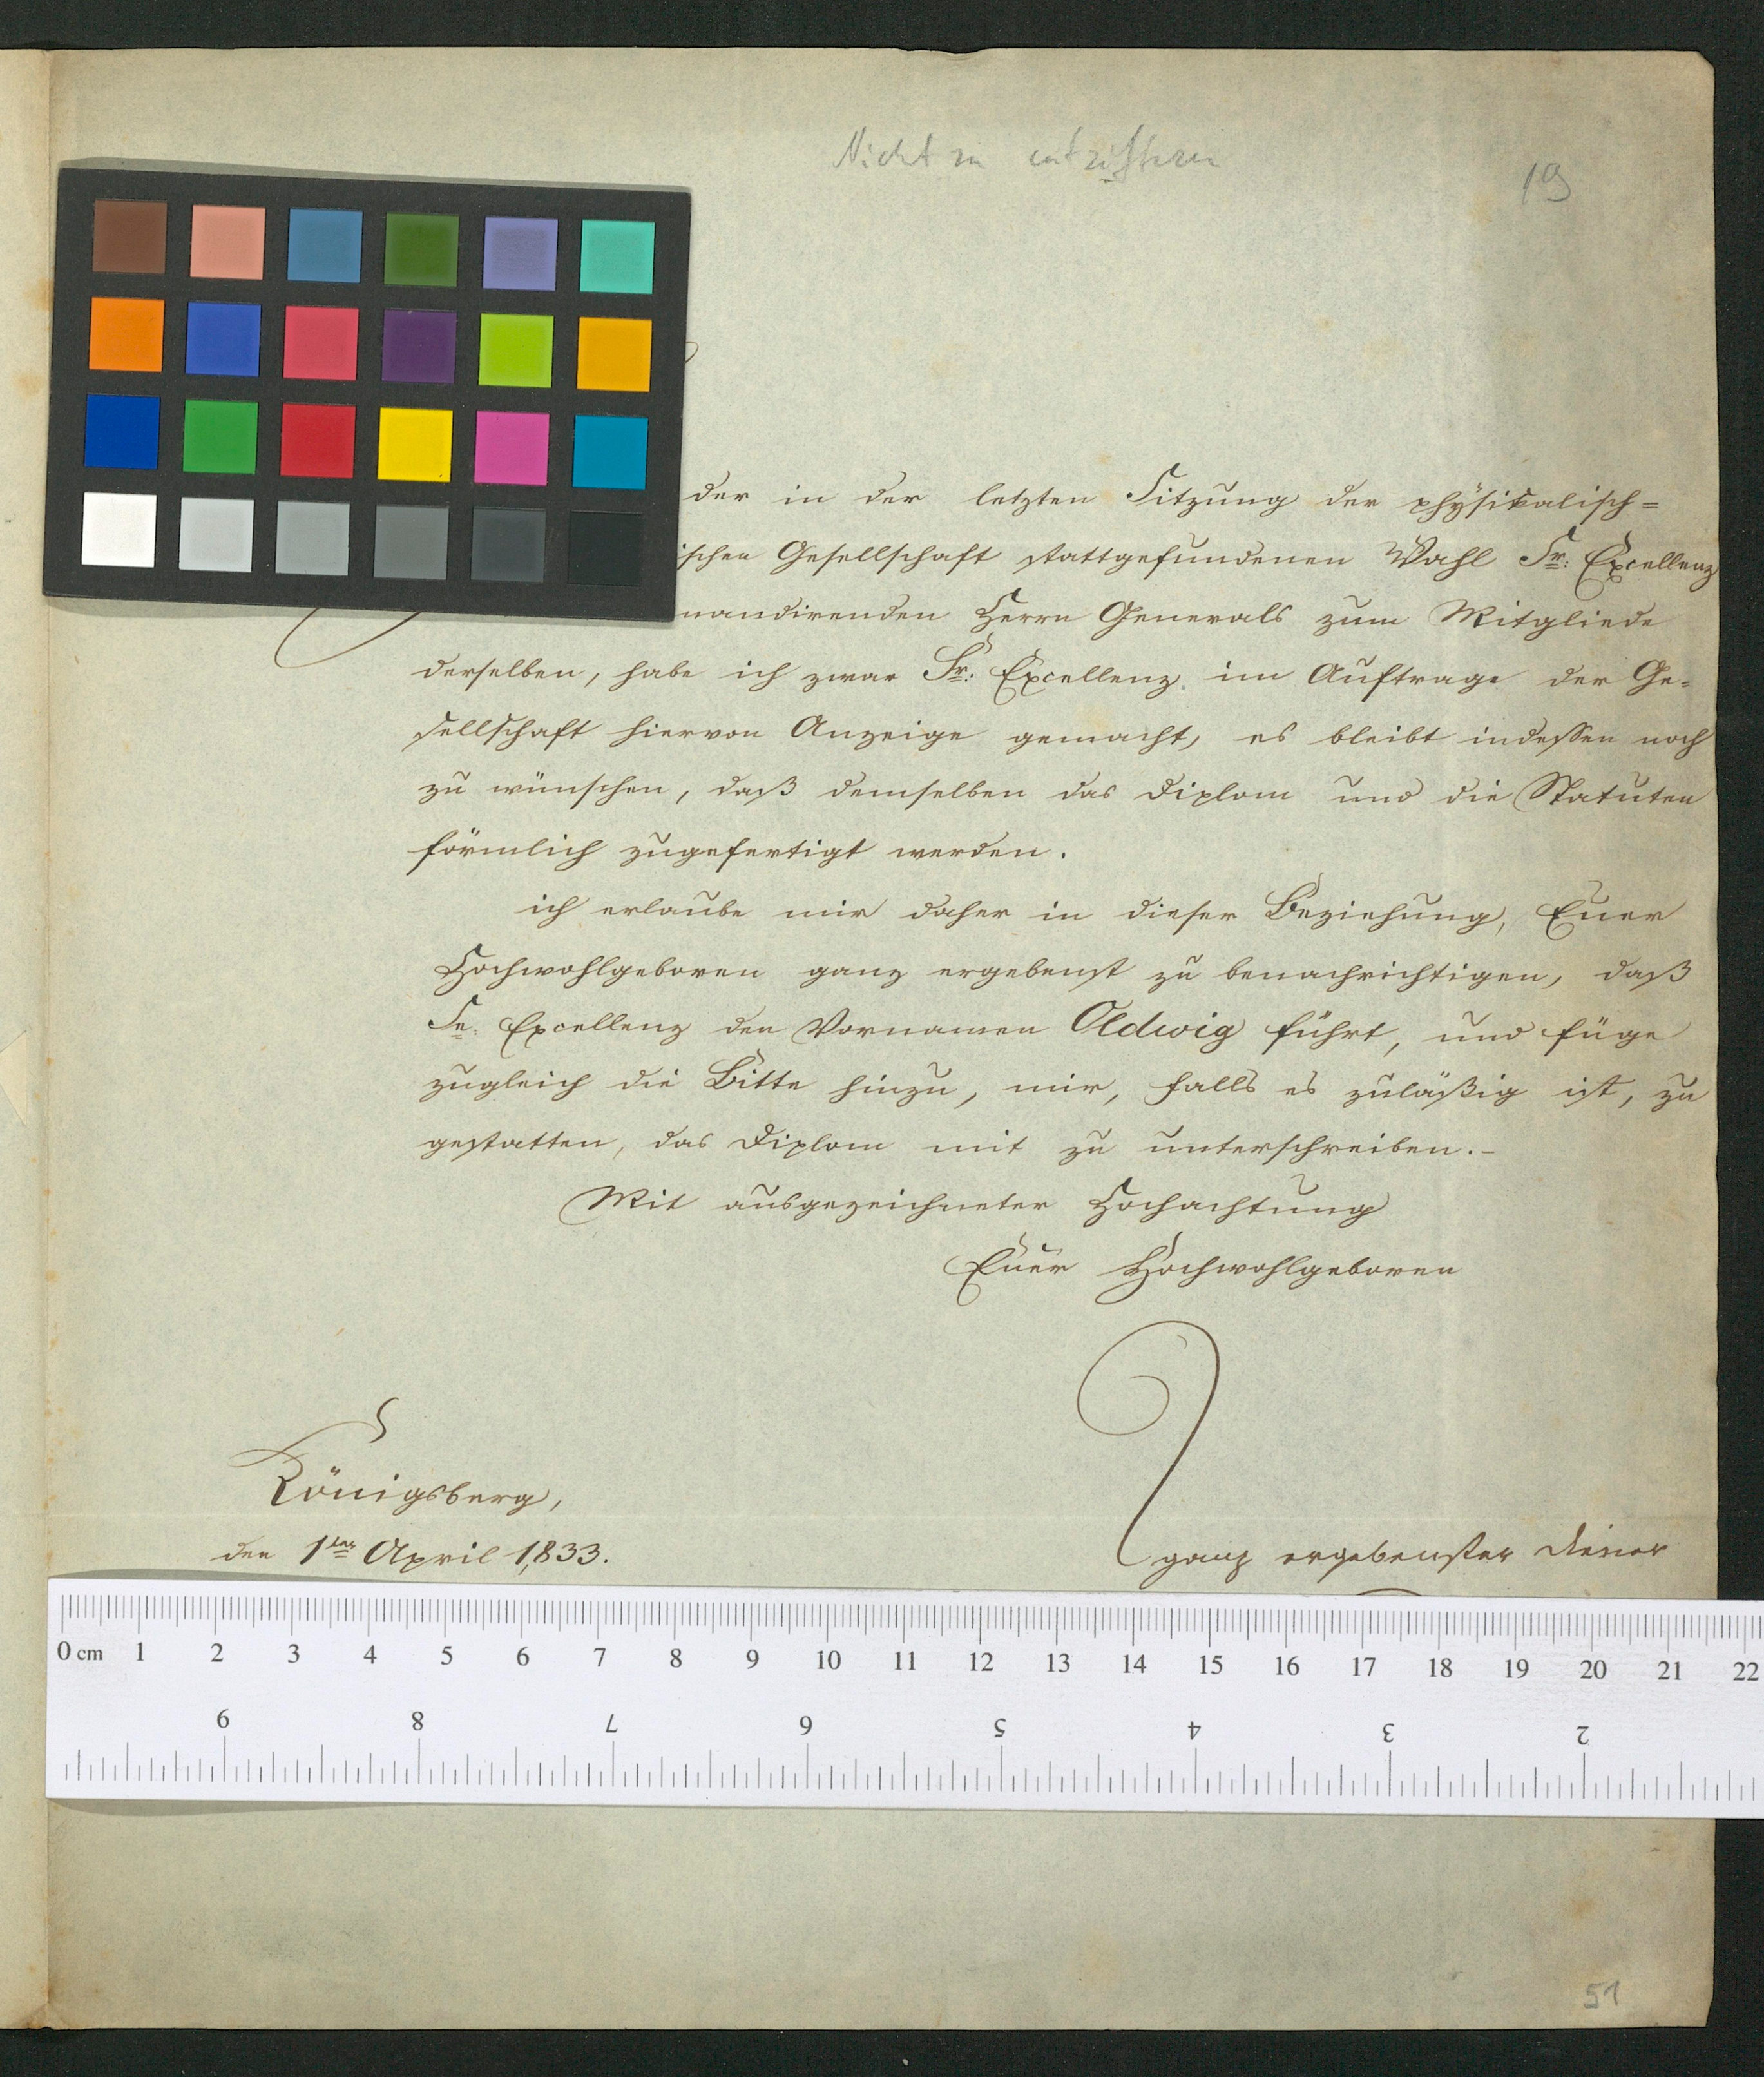 Nicht zu entziffern
19
der in der letzten Sitzung der physikalisch=
ischen Gesellschaft stattgefundenen Wahl Sr: Excellenz
mandirenden Herrn Generals zum Mitgliede
derselben, habe ich zwar Sr: Excellenz im Auftrage der Ge-
sellschaft hiervon Anzeige gemacht, es bleibt indessen noch
zu wünschen, daß demselben das Diplom und die Statuten
förmlich zugefertigt werden.
ich erlaube mir daher in dieser Beziehung, Euer
Hochwohlgeboren ganz ergebenst zu benachrichtigen, daß
Se: Excellenz den Vornamen Oldwig führt, und füge
zugleich die Bitte hinzu, mir, falls es zuläßig ist, zu
gestatten, das Diplom mit zu unterschreiben.-
Mit ausgezeichneter Hochachtung
Euer Hochwohlgeboren
Königsberg,
den 1ten April 1833.
ganz ergebenster Diener
0 cm 1 2 3 4 5 6 7 8 9 10 11 12 13 14 15 16 17 18 19 20 21 22
9 8 7 6 5 4 3 2
51